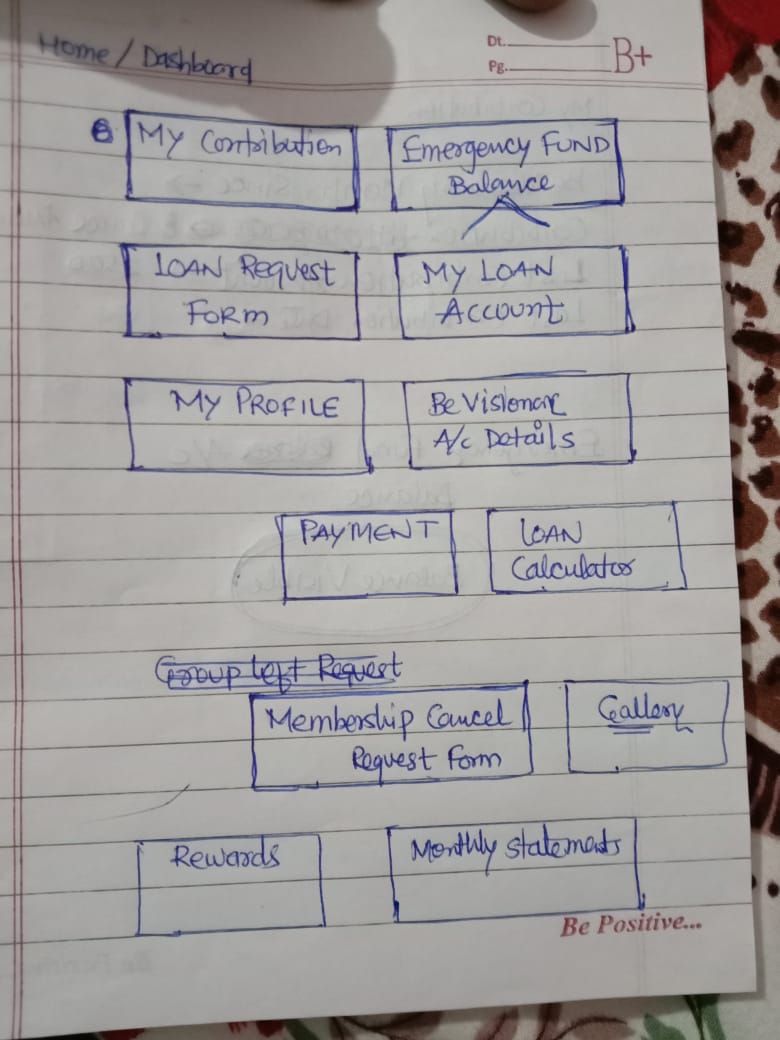 Home / Dashboard
Dt.
Pg.
B+
My Contribution
Emergency FUND
Balance
LOAN Request
FORM
MY LOAN
ACCOUNT
MY PROFILE
Be Visionary
A/c Details
PAYMENT
LOAN
Calculator
Group Left Request
Membership Cancel
Request Form
Gallery
Rewards
Monthly statements
Be Positive...